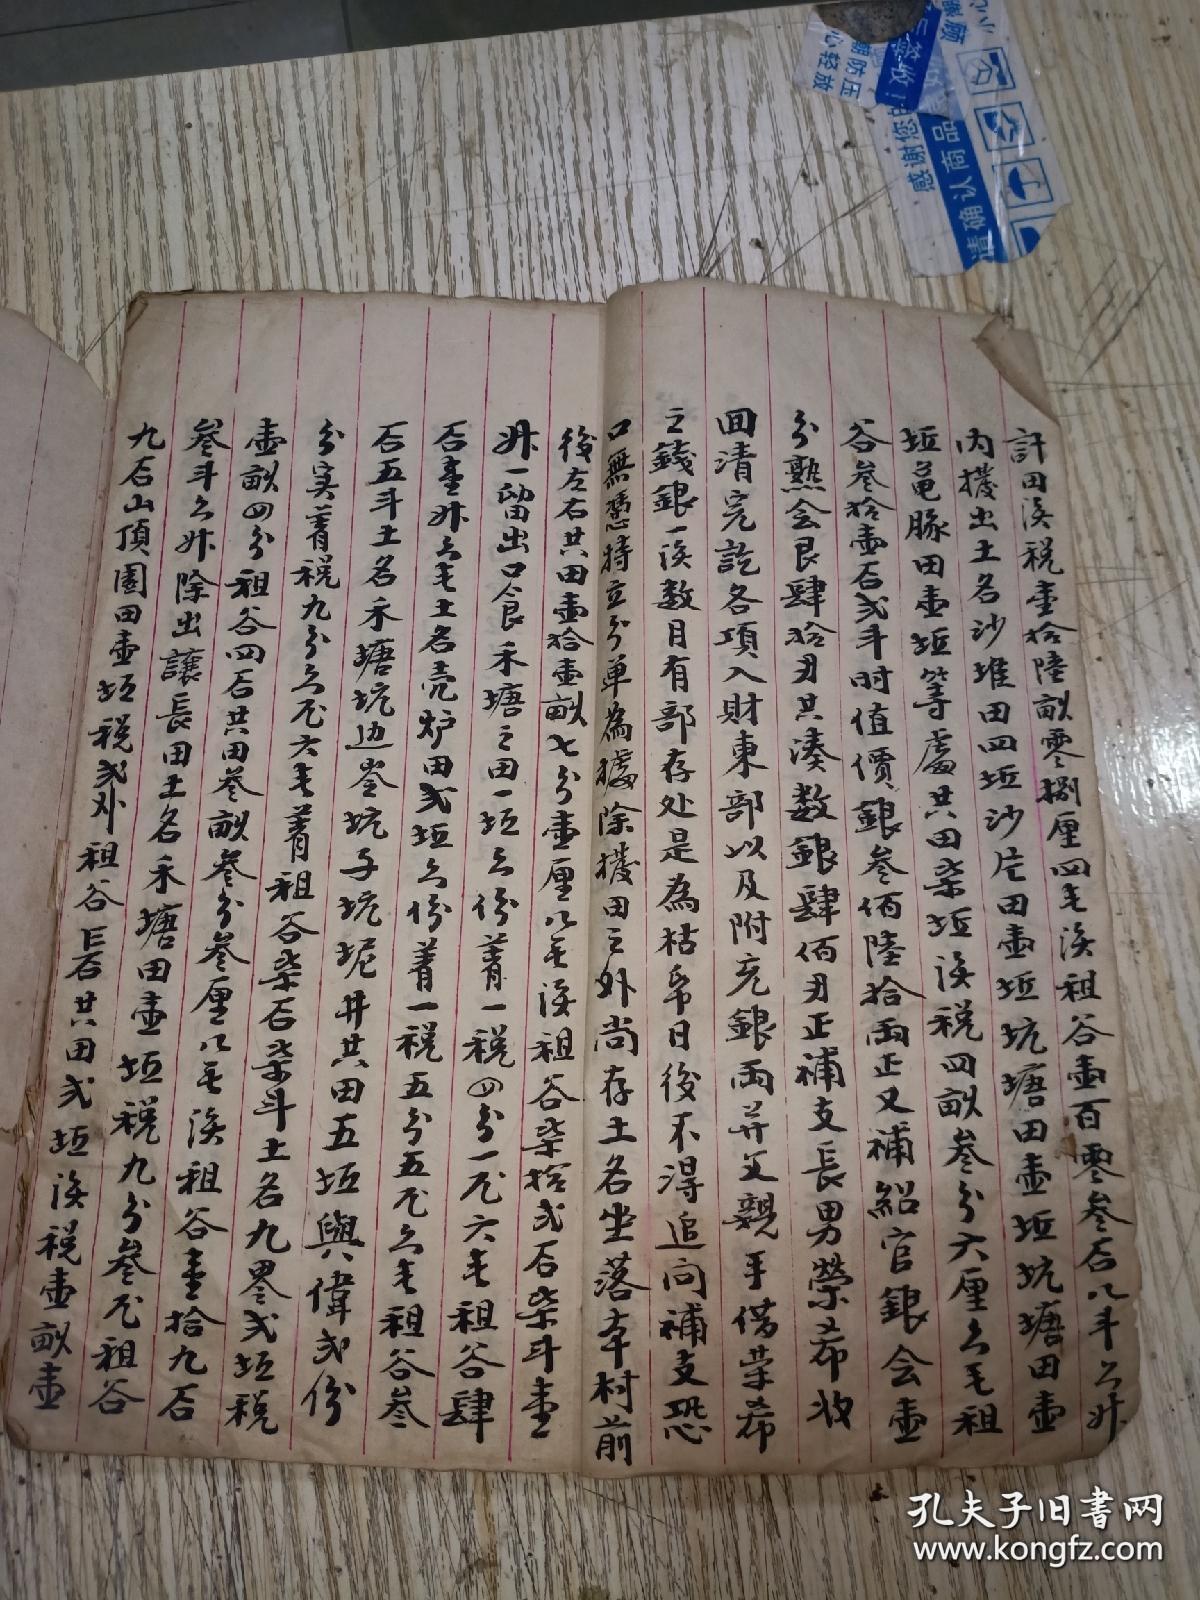 計田淡税壹拾陸畝零捌厘四毛淡租谷壹百零叁石八斗六升
内撥出土名沙堆田四坵沙片田壹坵坑塘田壹坵坑塘田壹
坵黾豚田壹坵等處共田柒坵淡税四畝叁分六厘六毛租
谷叁拾壹石弍斗时值價銀叁佰陸拾両正又補紹官銀会壹
分熟会艮肆拾刃共湊数銀肆佰刃正補支長男榮希收
回清完訖各項入財東部以及附充銀両并父親手借荣希
之錢銀一淡数目有部存处是為枯帋日後不得追问補支恐
口無憑特立分单為據除撥田之外尚存土名坐落本村前
後左右共田壹拾壹畝七分壹厘八毛淡租谷柒拾弍石柒斗壹
升一留出口食禾塘之田一坵六份著一税四分一厘六毛租谷肆
石壹升六毛土名壳炉田弍坵六份著一税五分五厘六毛租谷叁
石五斗土名禾塘坑边岺坑子坑坭井共田五坵與偉弍份
分实著税九分六厘六毛著租谷柒石柒斗土名九畧弍坵税
壹畝四分租谷四石共田叁畝叁分叁厘八毛淡租谷壹拾九石
叁斗六升除出讓長田土名禾塘田壹坵税九分叁厘租谷
九石山頂園田壹坵税弍分租谷 石共田弍坵淡税壹畝壹
感谢您
请确认商品
签收
期防压
心轻放
孔夫子旧书网
www.kongfz.com